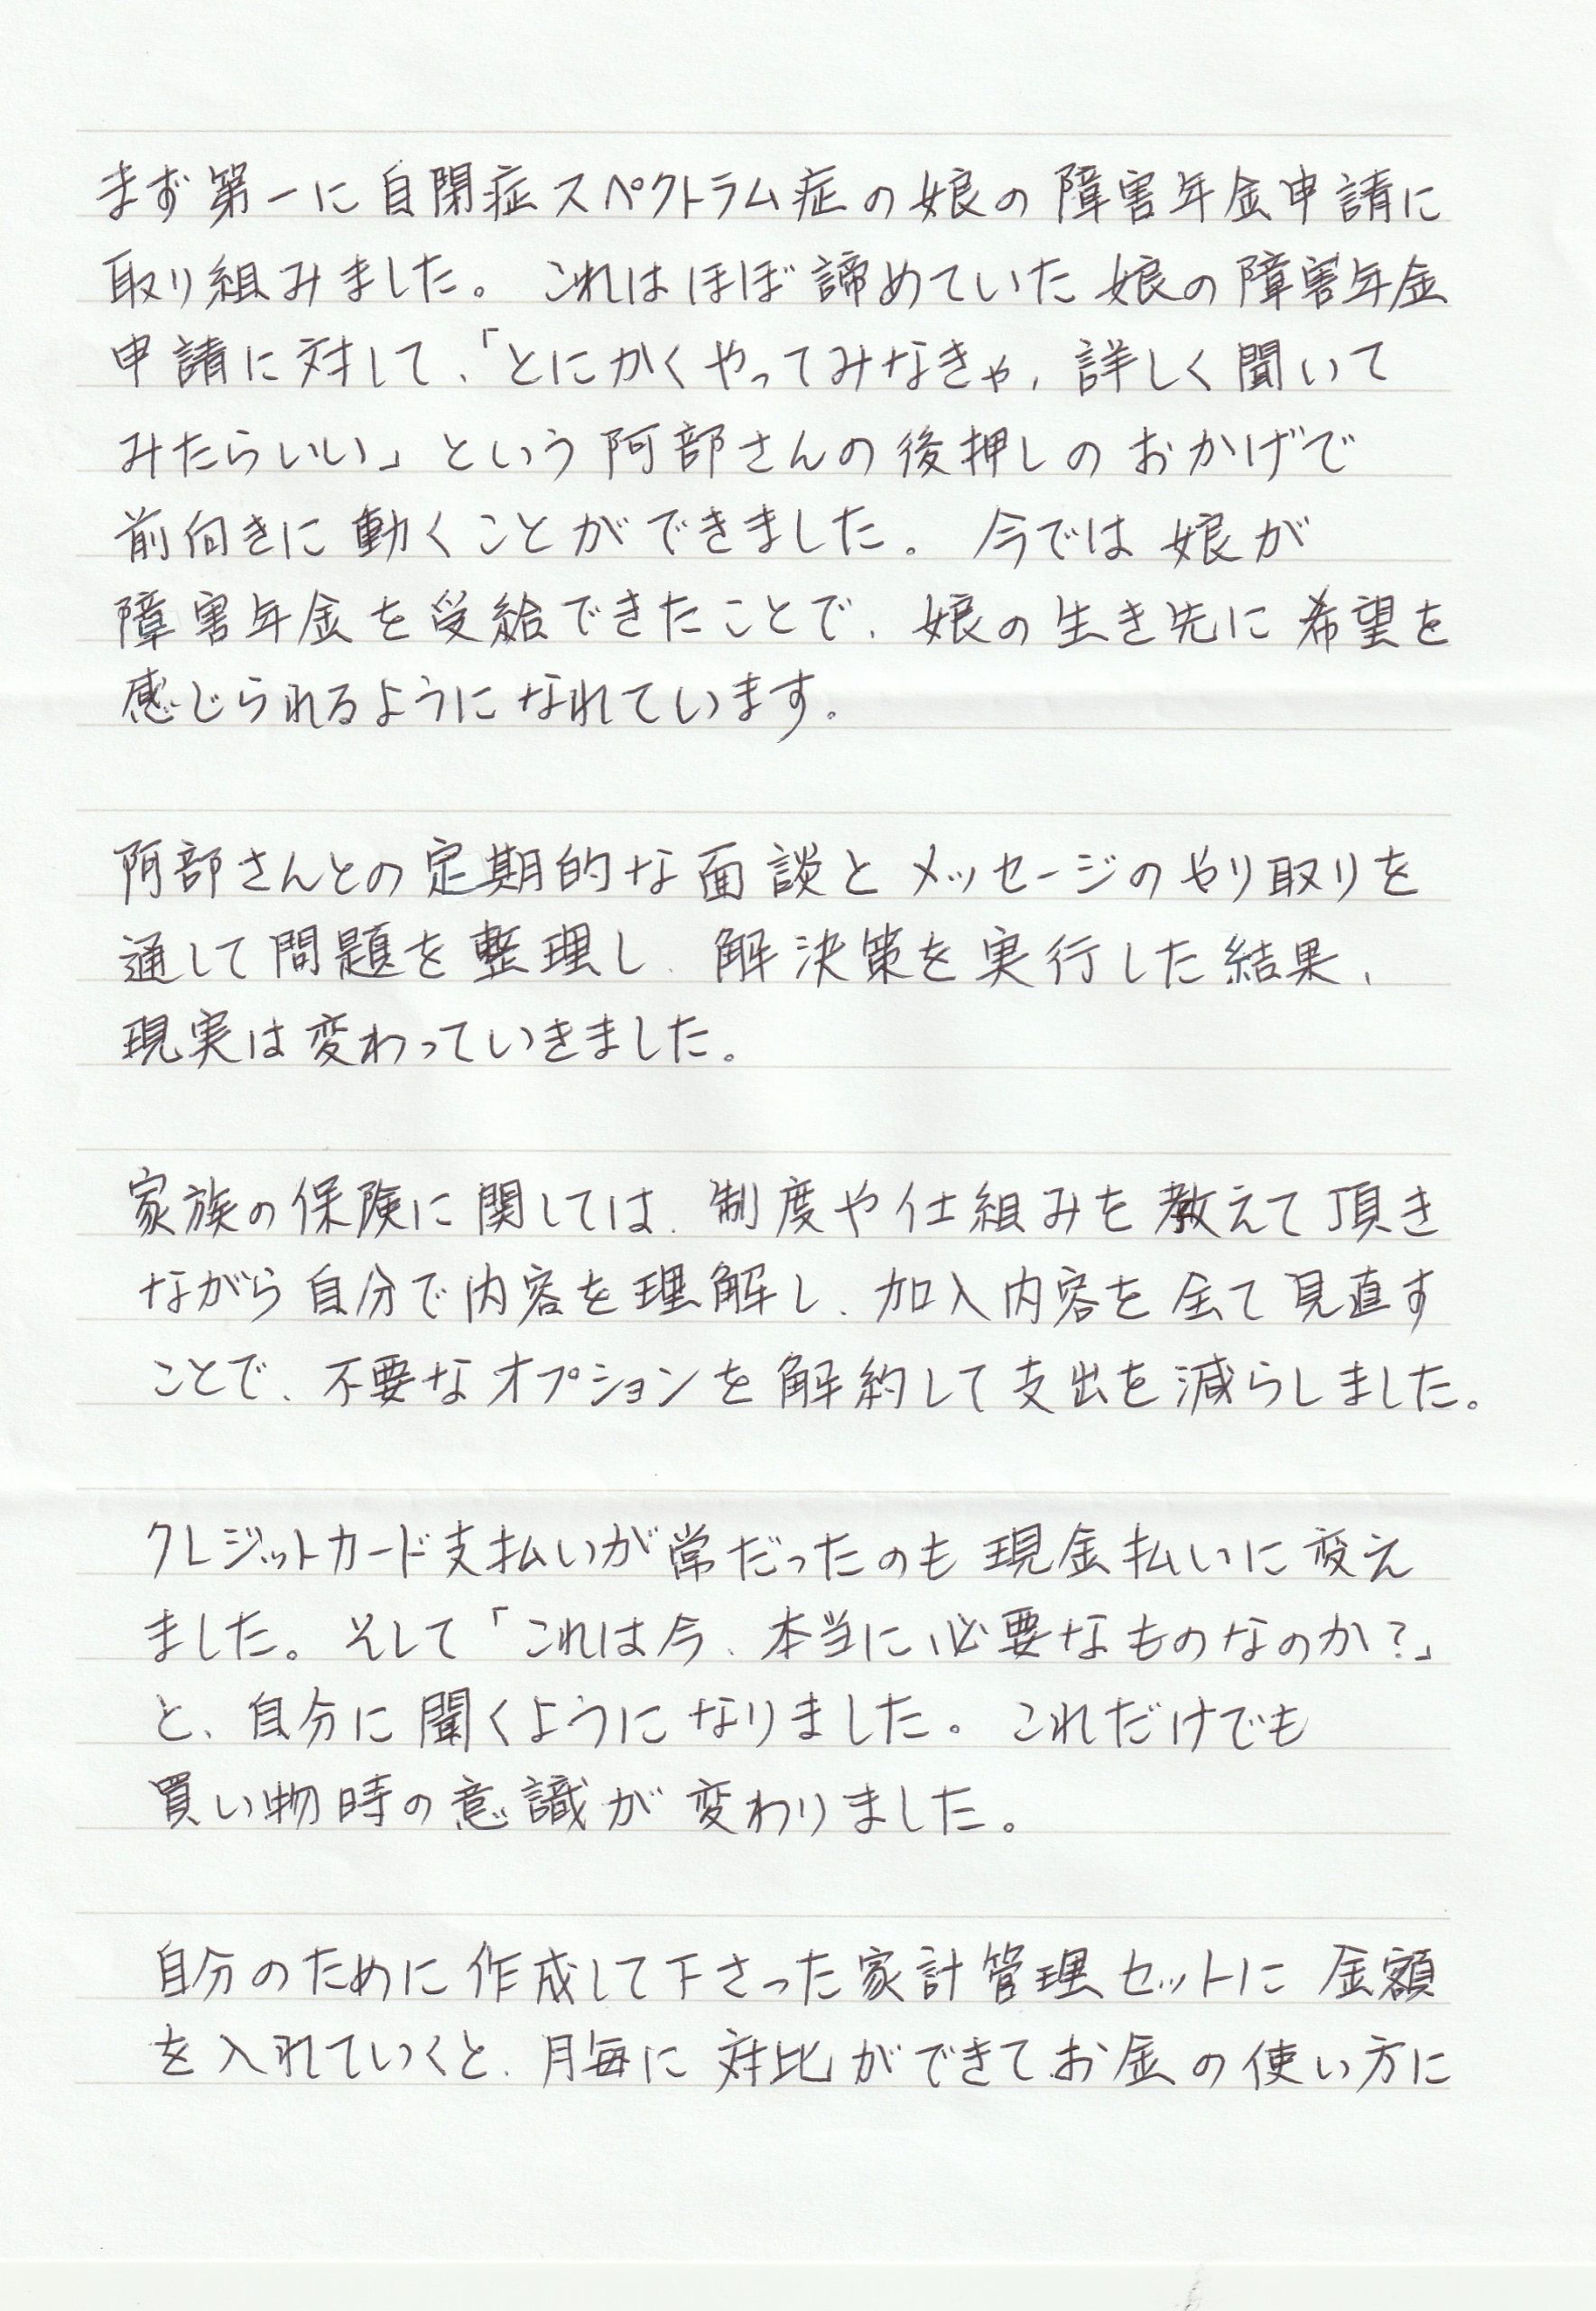 まず第一に自閉症スペクトラム症の娘の障害年金申請に
取り組みました。これはほぼ諦めていた娘の障害年金
申請に対して、「とにかくやってみなきゃ、詳しく聞いて
みたらいい」という阿部さんの後押しのおかげで
前向きに動くことができました。今では娘が
障害年金を受給できたことで、娘の生き先に希望を
感じられるようになれています。
阿部さんとの定期的な面談とメッセージのやり取りを
通して問題を整理し、解決策を実行した結果、
現実は変わっていきました。
家族の保険に関しては、制度や仕組みを教えて頂き
ながら自分で内容を理解し、加入内容を全て見直す
ことで、不要なオプションを解約して支出を減らしました。
クレジットカード支払いが常だったのも現金払いに変え
ました。そして「これは今、本当に必要なものなのか?」
と、自分に聞くようになりました。これだけでも
買い物時の意識が変わりました。
自分のために作成して下さった家計管理セットに金額
を入れていくと、月毎に対比ができてお金の使い方に